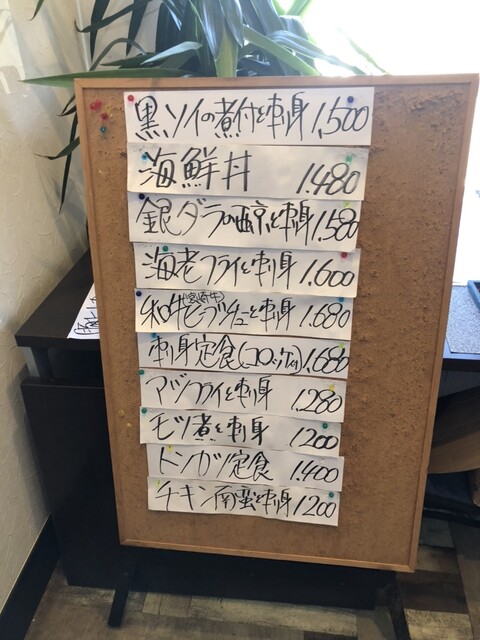 黒ソイの煮付と刺身 1,500
海鮮丼 1.480
銀ダラの西京と刺身 1.580
海老フライと刺身 1.600
和牛(宮崎牛)ビーフシチューと刺身 1.680
刺身定食(コロッケ付) 1,680
アジフライと刺身 1.280
モツ煮と刺身 1200
トンカツ定食 1.400
チキン南蛮と刺身 1200